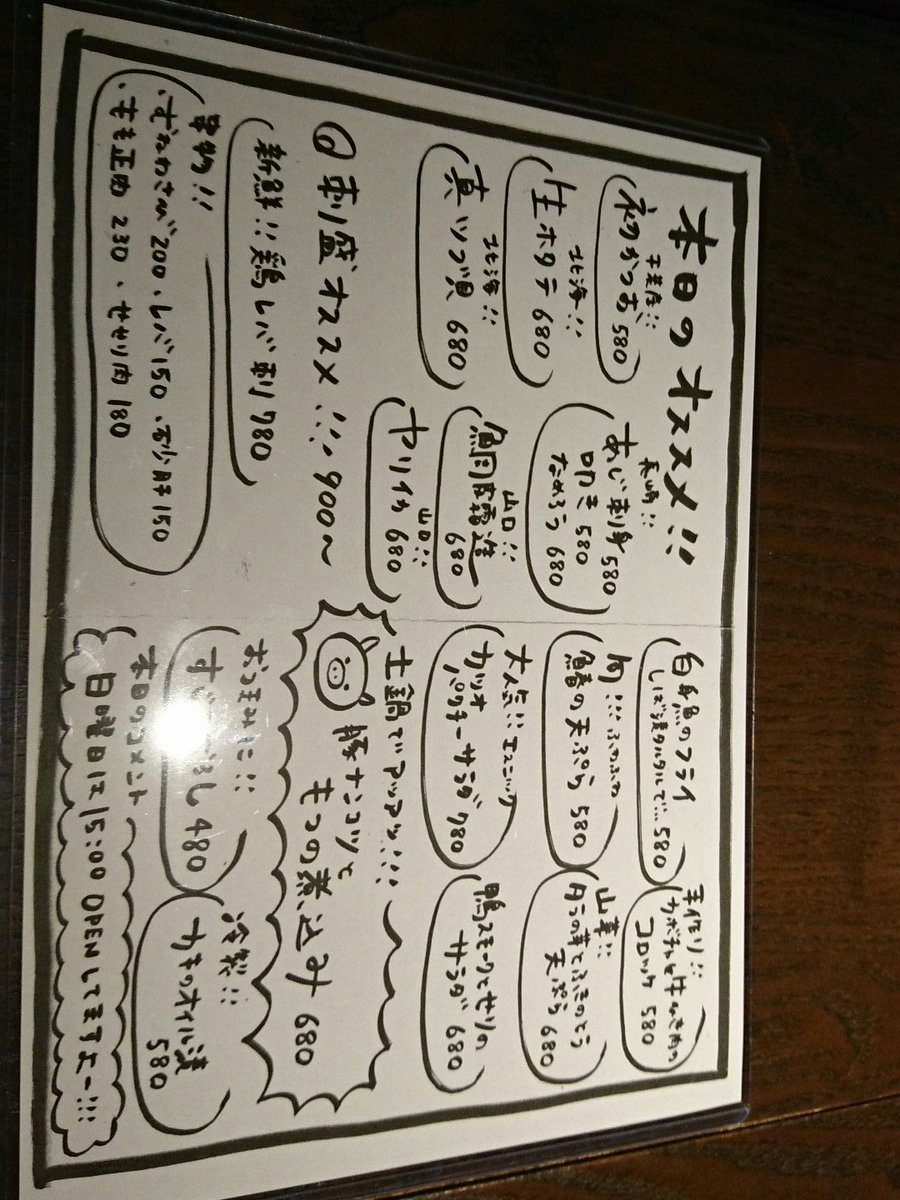 本日のオススメ!!
千葉産!!
初かつお 580
北海!!
生ホタテ 680
北海!!
真ツブ貝 680
長崎!!
あじ刺身 580
叩き 580
なめろう 680
山口!!
鯛皮霜造 680
山口!!
ヤリイカ 680
刺し盛オススメ!!! 900〜
新鮮!! 鶏レバ刺 780
串物!!
・ずねわさび 200 ・レバ 150 ・砂肝 150
・もも正肉 230 ・せせり肉 180
白身魚のフライ
しば漬タルタルで… 580
手作り!!
カボチャと牛ひき肉の
コロッケ 580
旬!!! ふわふわ
鰆の天ぷら 580
山菜!!
タラの芽とふきのとう
天ぷら 680
大人気!! エスニック
カツオ
パクチーサラダ 780
鴨スモークとセリの
サラダ 680
土鍋でアツアツ!!!
豚ナンコツと
もつの煮込み 680
おつまみに!!
480
冷製!!
カキのオイル漬
580
本日のコメント
日曜日は15:00 OPENしてますよー!!!